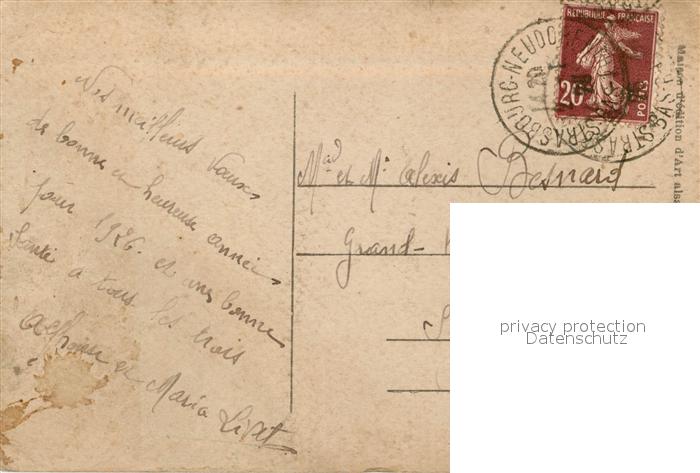 Nos meilleurs Vœux
de bonne et heureuse année
pour 1926. et une bonne
Santé a tous les trois
Alphonse et Maria Livet
STRASBOURG-NEUDORF
REPUBLIQUE FRANÇAISE
20
POSTES
Maison d'édition d'Art alsa
Mad et Mr Alexis Besnard
Grand-
privacy protection
Datenschutz